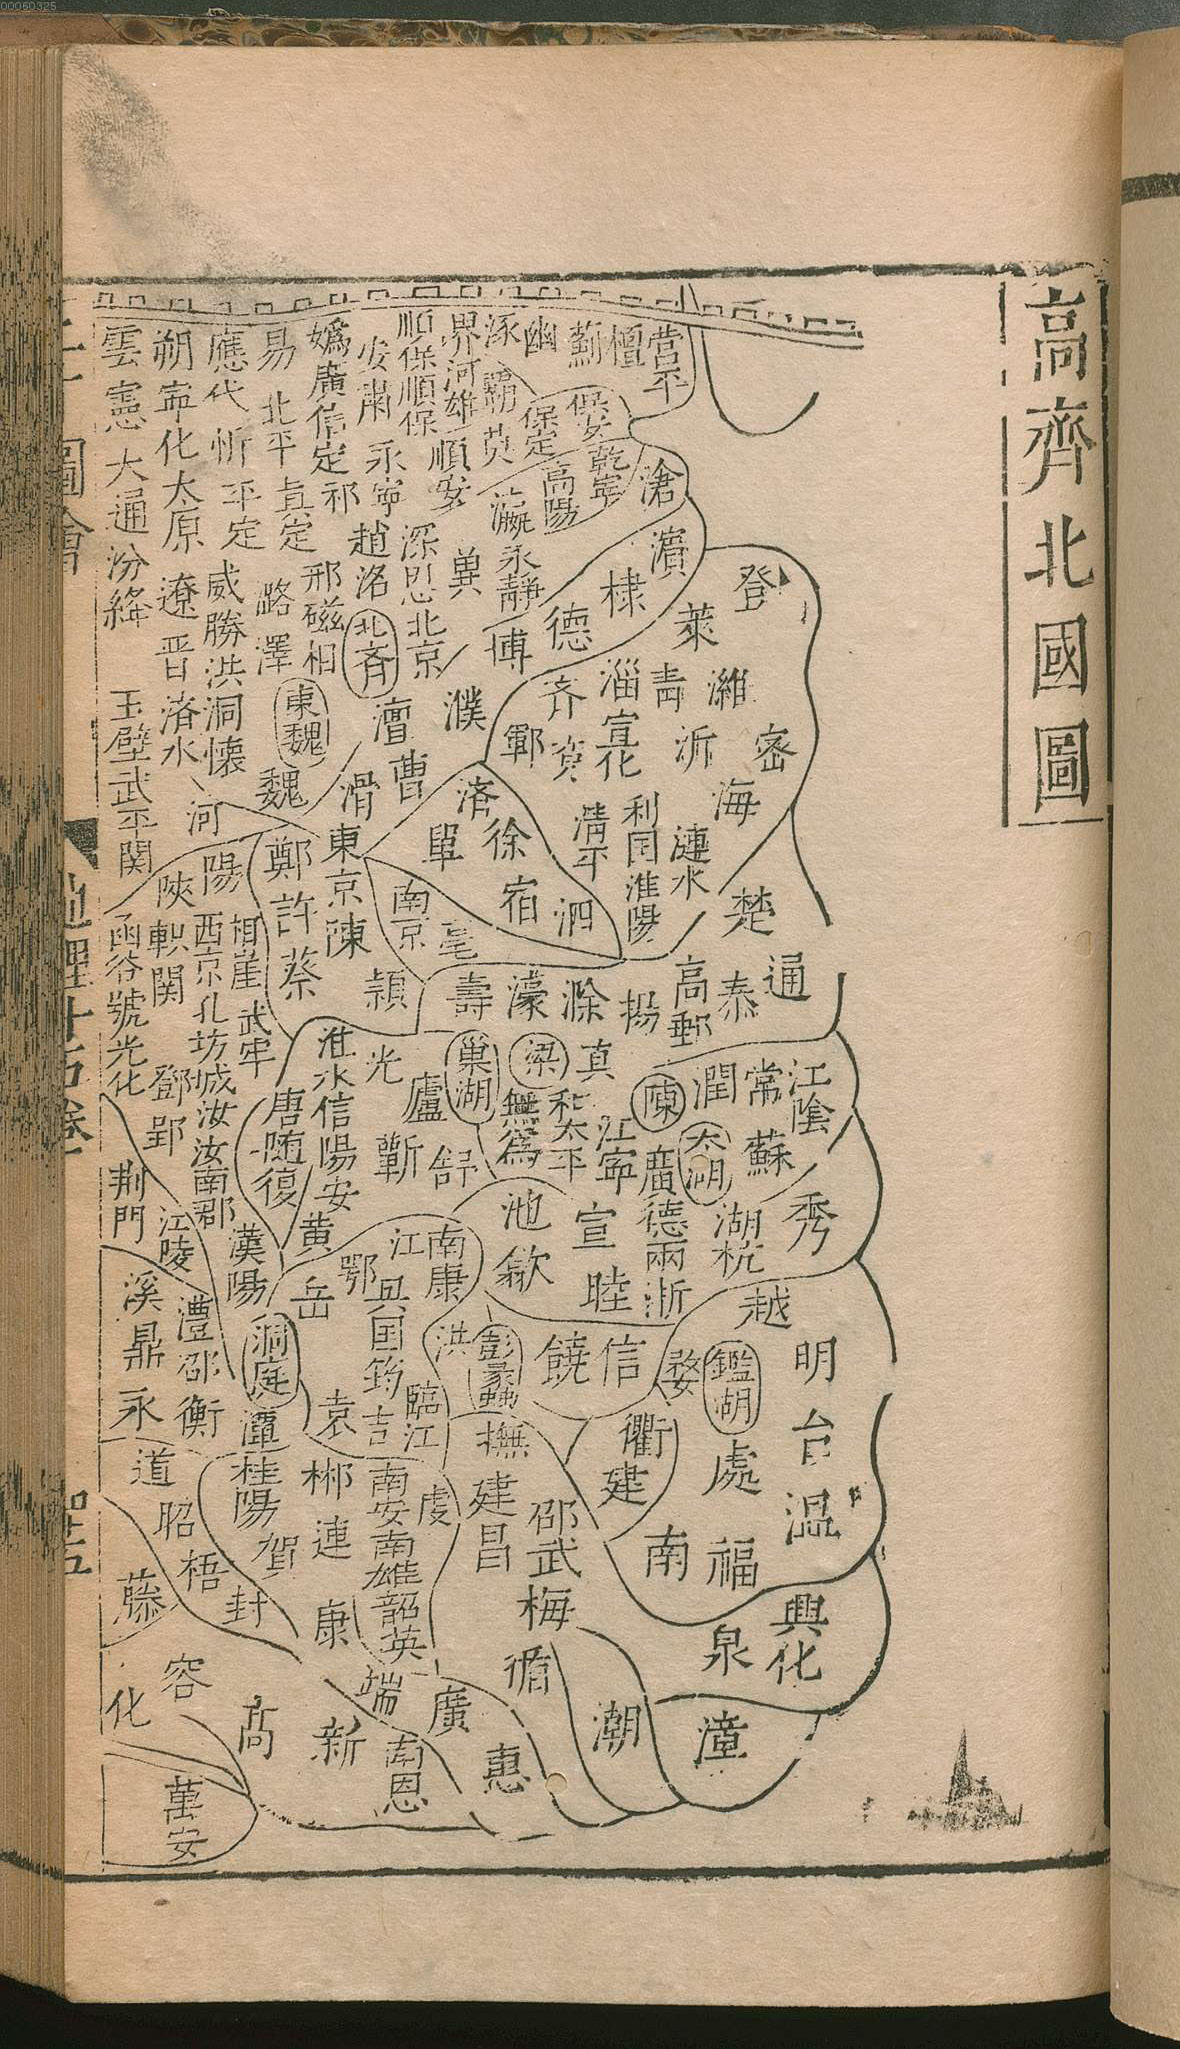 00060325
高齊北國圖
營平
檀
薊
幽
涿
界河雄
順保順保
安肅
媯廣信定祁
易
北平
真定
應代忻平定
朔寧化太原
雲憲大通汾絳
霸莫
保定
保安
乾寧
高陽
順安
永寧
滄
濱
棣
德
博
瀛
永靜
冀
深
北京
趙洺
北齊
邢磁相
潞澤
威勝洪洞懷
遼晉洛水
玉壁武平関
登
萊
濰
密
青
淄
齊
鄆
宣化
沂
海
濮
澶
曹
滑
東魏
魏
河陽
濟
單
徐
宿
泗
清平
利国
淮陽
漣水
楚
通
泰
高郵
揚
滁
濠
壽
南京
亳
東京陳
潁
鄭許蔡
陝
軹関
函谷虢光化
西京北坊城汝汝南郡
武牢
鄧郢
真
梁
巢湖
無為
和太平
江寧
陳
潤
常
江陰
太湖
蘇
秀
湖杭
廣德兩浙
宣
睦
池
歙
光
廬
舒
蘄
淮水信陽安
黃
唐随復
漢陽
江陵
荆門
越
明
台
溫
鑑湖
婺
處
衢
建
信
饒
彭蠡
洪
南康
江
鄂
岳
興国筠
吉
臨江
袁
洞庭
潭
澧邵衡
溪鼎永
道
昭梧
藤
桂陽
賀
封
郴連
康
南安南雄韶英
虔
撫
建昌
邵武
梅
循
南
福
興化
泉
漳
潮
惠
廣
端
南恩
新
高
容
化
萬安